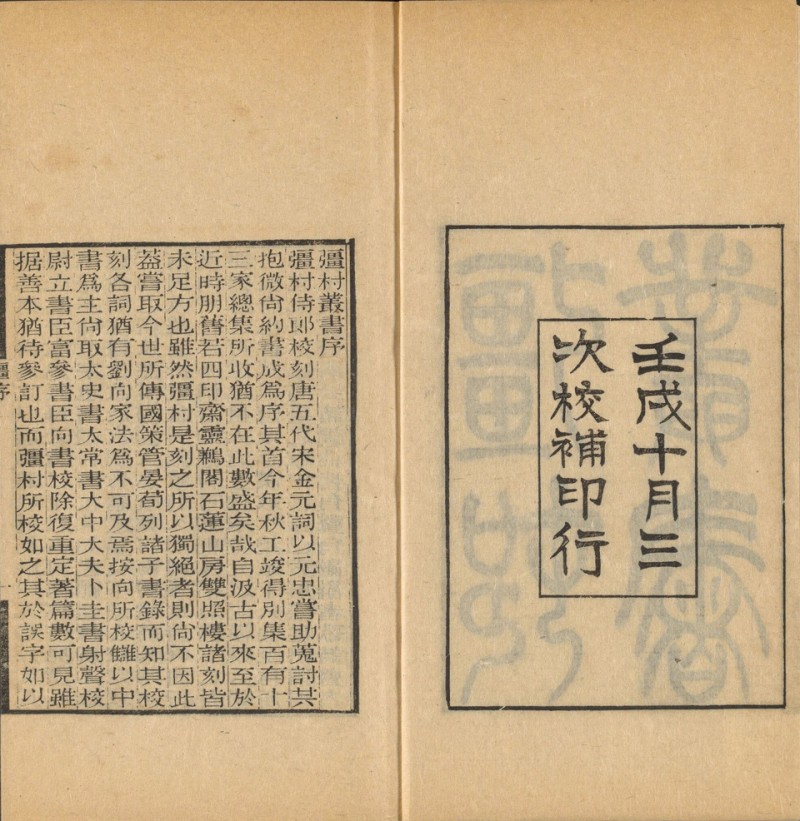 壬戌十月三
次校補印行
彊村叢書序
彊村侍郎校刻唐五代宋金元詞以元忠嘗助蒐討共
抱微尚約書成爲序其首今年秋工竣得別集百有十
三家總集所收猶不在此數盛矣哉自汲古以來至於
近時朋舊若四印齋靈鶼閣石蓮山房雙照樓諸刻皆
未足方也雖然彊村是刻之所以獨絕者則尚不因此
葢嘗取今世所傳國策管晏荀列諸子書錄而知其校
刻各詞猶有劉向家法爲不可及焉按向所校讎以中
書爲主尙取太史書太常書大中大夫卜圭書射聲校
尉立書臣富參書臣向書校除復重定著篇數可見雖
据善本猶待參訂也而彊村所校如之其於誤字如以
彊序
一